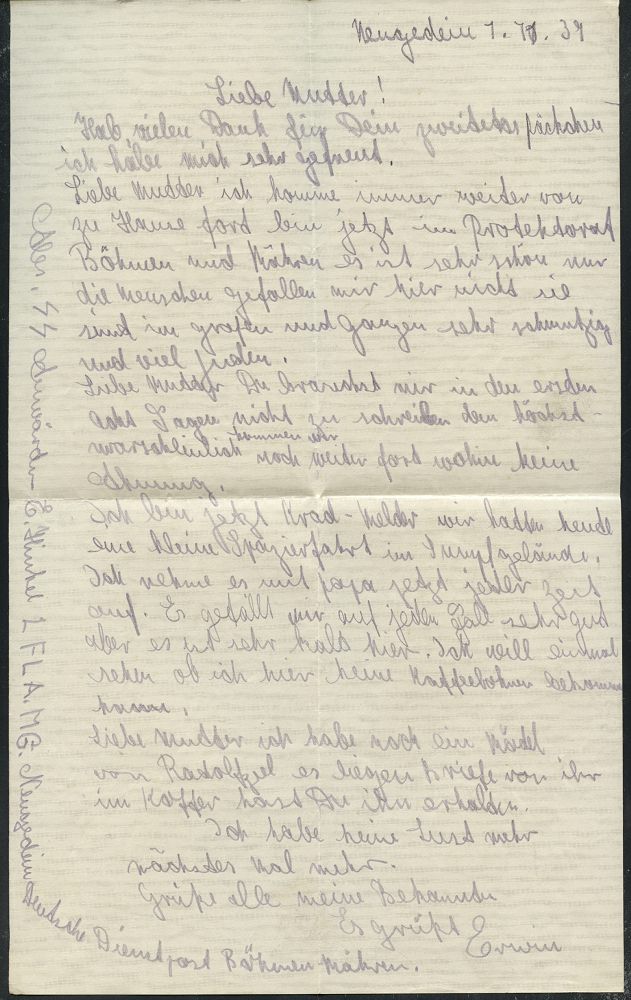 Neugedein 1. 11. 39
Liebe Mutter!
Hab vielen Dank für Dein zweites päckchen
ich habe mich sehr gefreut.
Liebe Mutter ich komme immer weiter von
zu Hause fort bin jetzt im Protektorat
Böhmen und Mähren es ist sehr schön nur
die Menschen gefallen mir hier nicht sie
sind im großen und ganzen sehr schmutzig
und viel Juden.
Liebe Mutter Du brauchst mir in den ersten
acht Tagen nicht zu schreiben den höchst-
warscheinlich kommen wir noch weiter fort wohin keine
Ahnung.
Ich bin jetzt Krad-Melder wir hatten heute
eine kleine Spazierfahrt im Sumpfgelände.
Ich nehme es mit papa jetzt jeder zeit
auf. Es gefällt mir auf jeden Fall sehr gut
aber es ist sehr kalt hier. Ich will einmal
sehen ob ich hier keine Kaffeebohnen bekommen
kann.
Liebe Mutter ich habe noch ein Mädel
von Radolfzel es liegen Briefe von ihr
im Koffer hast Du ihn erhalten.
Ich habe keine Lust mehr
nächstes Mal mehr.
Grüße alle meine Bekannten
Es grüßt
Erwin
SS Anwärter E. Hinkel 1 FLA. MG. Neugedein Deutsche
Dienstpost Böhmen Mähren.